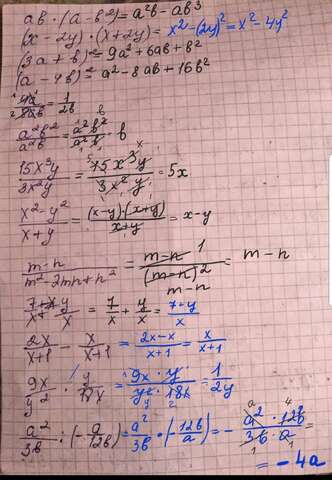 ab · (a - b²) = a²b - ab³
(x - 2y) · (x + 2y) = x² - (2y)² = x² - 4y²
(3a + b)² = 9a² + 6ab + b²
(a - 4b)² = a² - 8ab + 16b²
4a/8ab = 1/2b
a²b²/a²b = a²b²/a²b = b
15x³y/3x²y = 15x³y/3x²y = 5x
x² - y²/x + y = (x-y)·(x+y)/x+y = x - y
m - n/m² - 2mn + n² = m - n/(m-n)² = m - n
7/x + y/x = 7/x + y/x = 7 + y/x
2x/x+1 - x/x+1 = 2x - x/x+1 = x/x+1
a²/3b : (- a/12b) = a²/3b · (- 12b/a) = - a² · 12b/3b · a =
= - 4a